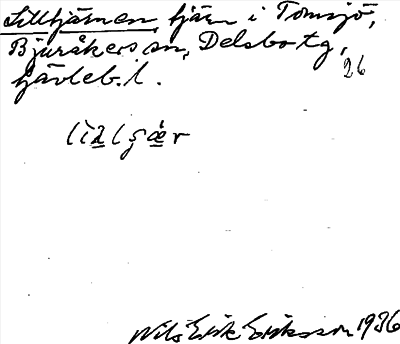 Lilltjärnen, tjärn i Tomsjö,
Bjuråkers sn, Delsbo tg,
Gävleb. l. 26
Nils Erik Eriksson 1936